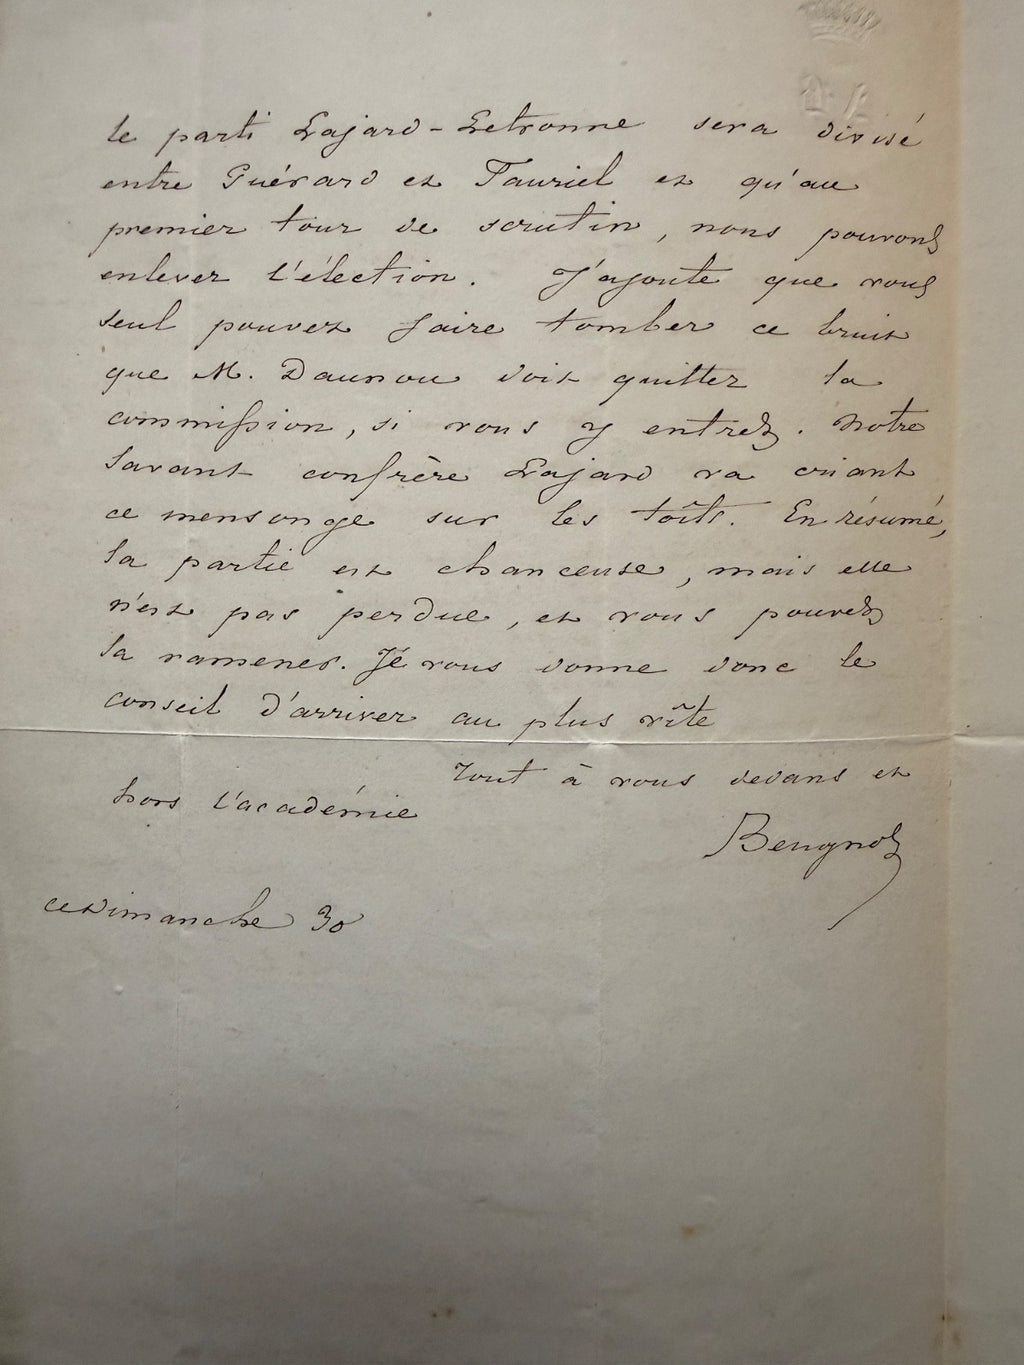 le parti Lajard-Letronne sera divisé
entre Guérard et Fauriel et qu'au
premier tour de scrutin, nous pouvons
enlever l'élection. J'ajoute que vous
seul pouvez faire tomber ce bruit
que M. Daunou doit quitter la
commission, si vous y entrez. Notre
savant confrère Lajard va criant
ce mensonge sur les toîts. En résumé,
la partie est chanceuse, mais elle
n'est pas perdue, et vous pouvez
la ramener. Je vous donne donc le
conseil d'arriver au plus vîte
Tout à vous dedans et
hors l'académie
Beugnot
ce dimanche 30